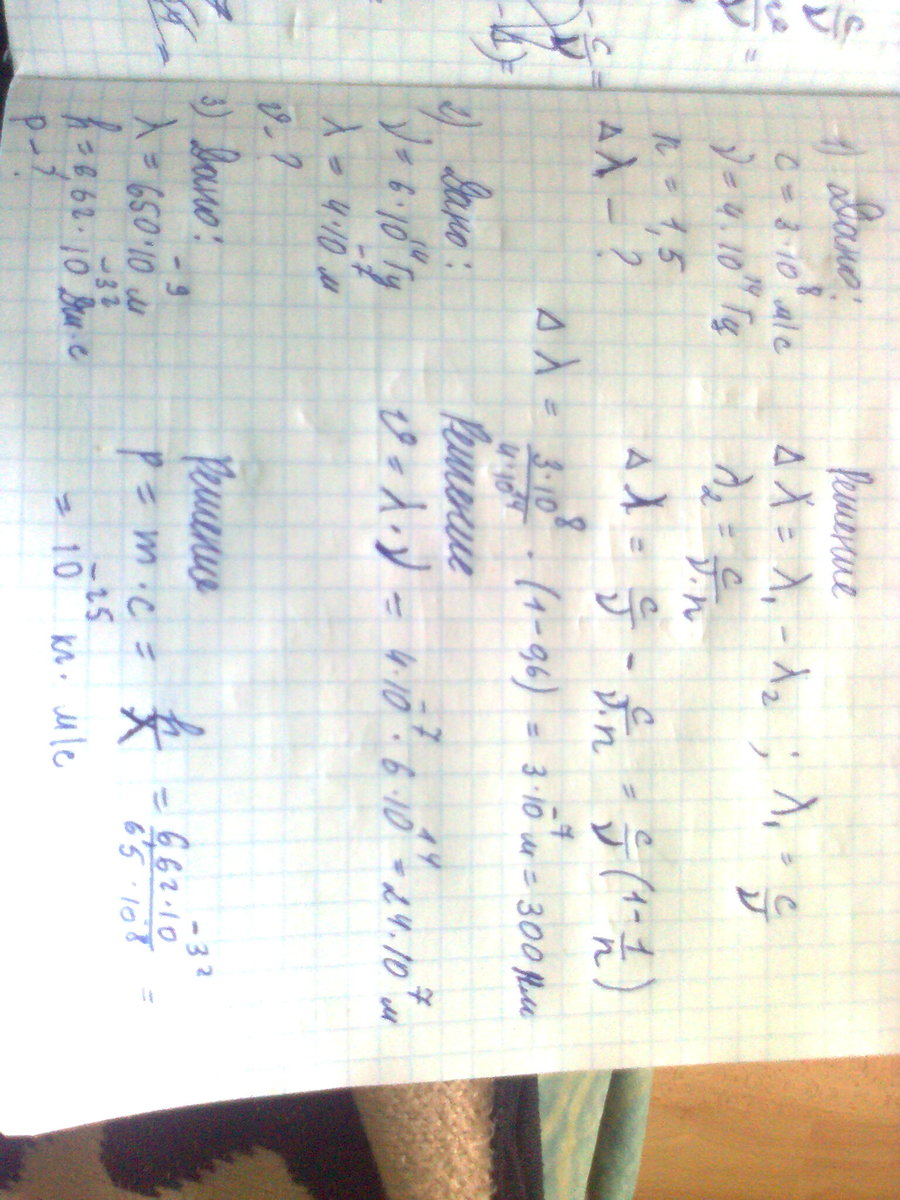 c
ν =
c
ν
c
ν =
1) Дано:
c = 3·10⁸ м/с
ν = 4·10¹⁴ Гц
n = 1,5
Δλ – ?
Решение
Δλ = λ₁ - λ₂ ; λ₁ = c/ν
λ₂ = c/ν·n
Δλ = c/ν - c/ν·n = c/ν (1 - 1/n)
Δλ = 3·10⁸/4·10¹⁴ · (1-96) = 3·10⁻⁷ м = 300 нм
2) Дано:
ν = 6·10¹⁴ Гц
λ = 4·10⁻⁷ м
υ - ?
Решение
υ = λ·ν = 4·10⁻⁷ · 6·10¹⁴ = 24·10⁷ м
3) Дано:
λ = 650·10⁻⁹ м
h = 662·10⁻³² Дж·с
p - ?
Решень
p = m·c = h/λ = 662·10⁻³²/65·10⁻⁸ =
= 10⁻²⁵ кг·м/с